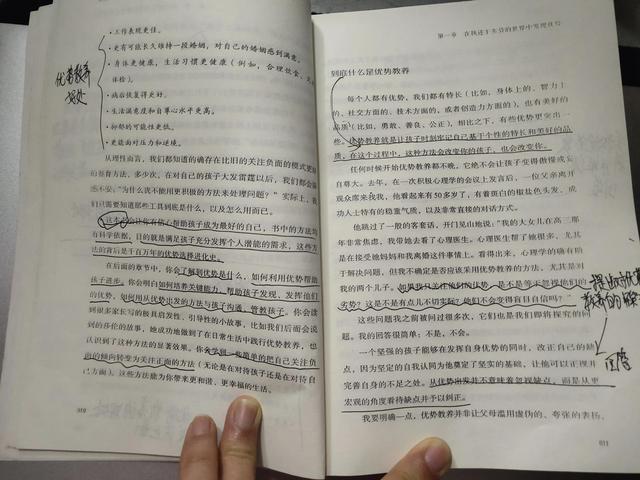 ·工作表现更佳。
·更有可能长久维持一段婚姻，对自己的婚姻感到满意。
·身体更健康，生活习惯更健康（例如，合理饮食，
体检）。
·病后恢复得更好。
·生活满意度和自尊心水平更高。
·抑郁的可能性更低。
·更能面对压力和逆境。
优势教养
好处
从理性而言，我们都知道的确存在比旧的关注负面的模式更好
的教育方法，多少次，在对自己的孩子大发雷霆以后，我们都会
感不安："为什么我不能用更积极的方法来处理问题？"实际上，我
们只需要知道那些工具到底是什么，以及怎么用而已。
这本书会让你有信心帮助孩子成为最好的自己，书中的方法均
有科学依据，目的就是满足孩子充分发挥个人潜能的需求，这些方
法的背后是千百万年的优势选择进化史。
在后面的章节中，你会了解到优势是什么，如何利用优势帮助
孩子进步。你会明白如何培养关键能力，帮助孩子发现、发挥他们
的优势，如何用从优势出发的方法与孩子沟通、管教孩子。你会读
到很多家长写的极具启发性、引导性的小故事，比如我们后面会说
到的莎伦的故事，她成功地做到了在日常生活中践行优势教养，也
认识到了这种方法的显著效果。你会学到一我简单的把自己关注负
面的倾向转变为关注正面的方法（无论是在对待孩子还是在对待自
己方面）。这些方法能为你带来更和谐、更幸福的生活。
010
第一章 在执迷于劣势的世界中发现优势
到底什么是优势教养
每个人都有优势，我们都有特长（比如，身体上的、智力上
的、社交方面的、技术方面的，或者创造力方面的），也有美好的
品质（比如，勇敢、善良、公正），相比之下，有些优势更突出一
些。优势教养就是让孩子时刻牢记自己基于个性的特长和美好的品
质，在这个过程中，这种方法会改变你的孩子，也会改变你。
任何时候开始优势教养都不晚，它绝不会让孩子变得傲慢或妄
自尊大。去年，在一次积极心理学的会议上发言后，一位父亲离开
观众席来找我，他看起来有50多岁了，有着斑白的椒盐色头发、成
功人士特有的稳重气质，以及非常直接的对话方式。
他跳过了一般的客套话，开门见山地说："我的大女儿在高三那
年非常焦虑，我带她去看了心理医生。心理医生帮了她很多，尤其
是在接受她妈妈和我离婚这件事情上。看得出来，心理学的确有助
于解决问题，但我不确定是否应该采用优势教养的方法，尤其是对
我的两个儿子。如果我只关注他们的优势，是不是等于忽视他们的
劣势？这是不是有点儿不切实际？他们不会变得盲目自信吗？"
这些问题我之前被问过很多次，它们也是我们即将探究的问
题。我的回答很简单：不是，不会。
一个坚强的孩子能够在发挥自身优势的同时，改正自己的缺
点，因为坚定的自我认同为他奠定了坚实的基础，让他可以正视并
完善自身的不足之处。从优势出发并不意味着忽视缺点，而是从更
宏观的角度看待缺点并予以纠正。
我要明确一点，优势教养并非让父母滥用虚伪的、夸张的表扬，
回答
011